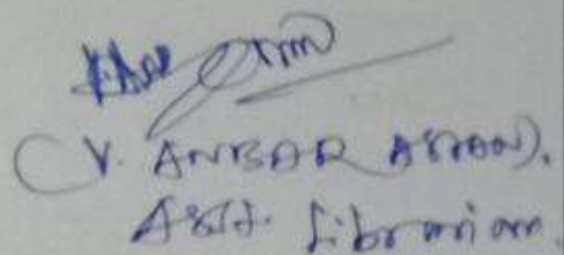 (V. ANBARASAN).
Asst. Librarian.